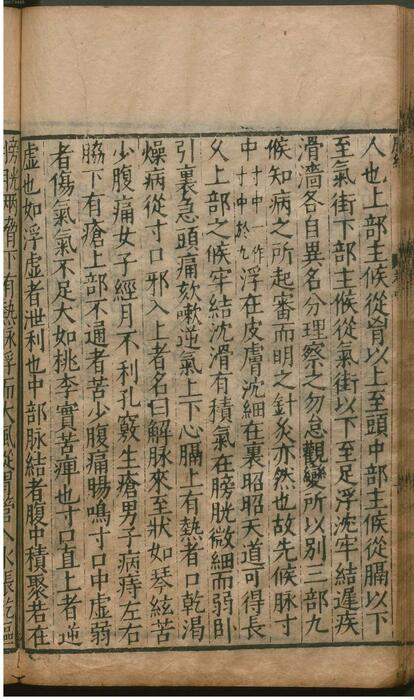 人也上部主候從胷以上至頭中部主候從膈以下
至氣街下部主候從氣街以下至足浮沈牢結遲疾
滑濇各自異名分理察之勿怠觀變所以別三部九
候知病之所起審而明之針灸亦然也故先候脉寸
中寸中一作寸中於九浮在皮膚沈細在裏昭昭天道可得長
久上部之候牢結沈滑有積氣在膀胱微細而弱卧
引裏急頭痛欬嗽逆氣上下心膈上有熱者口乾渴
燥病從寸口邪入上者名曰解脉來至狀如琴絃苦
少腹痛女子經月不利孔竅生瘡男子病痔左右
脇下有瘡上部不通者苦少腹痛腸鳴寸口中虚弱
者傷氣氣不足大如桃李實苦痺也寸口直上者逆
虚也如浮虚者泄利也中部脉結者腹中積聚若在
膀胱兩脅下有熱脉浮而大風從胃管入水脹乾嘔